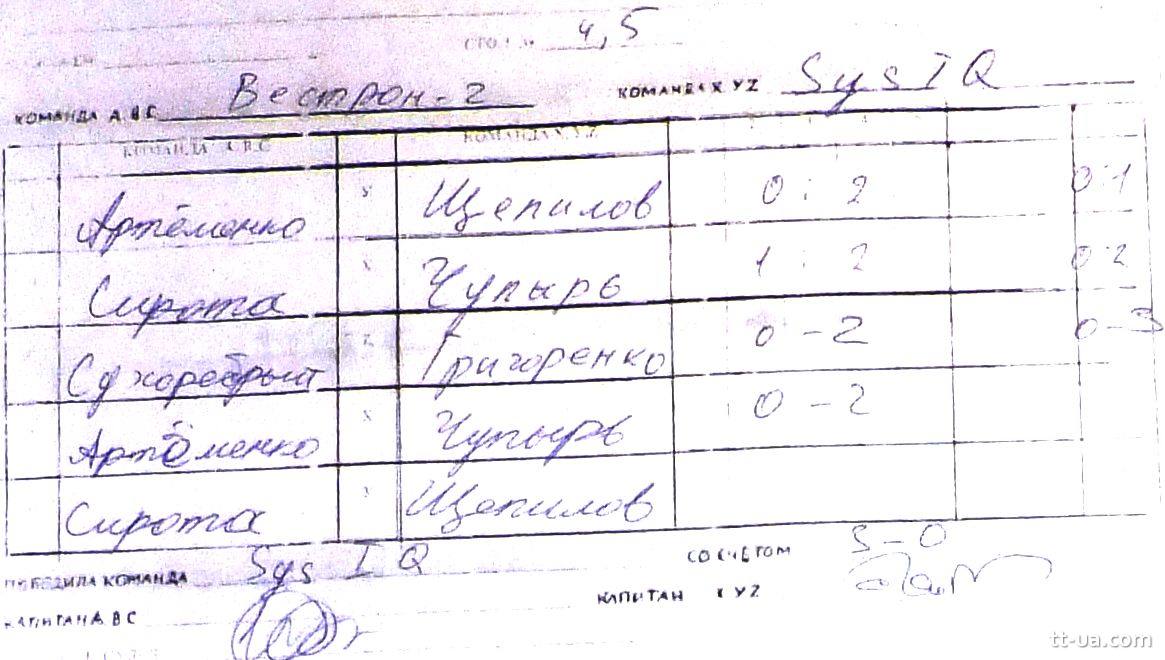 СТОЛ № 4,5
КОМАНДА А, В С Вестрон-2 КОМАНДА X YZ SysIQ
КОМАНДА А, В, С КОМАНДА X, Y, Z
Артёменко x Щепилов 0 : 2 0:1
Сирота x Чупырь 1 : 2 0:2
Григоренко 0 - 2 0-3
Артёменко x Чупырь 0 - 2
Сирота x Щепилов
ПОБЕДИЛА КОМАНДА Sys I Q СО СЧЁТОМ
КАПИТАН А В С КАПИТАН X YZ
tt-ua.com